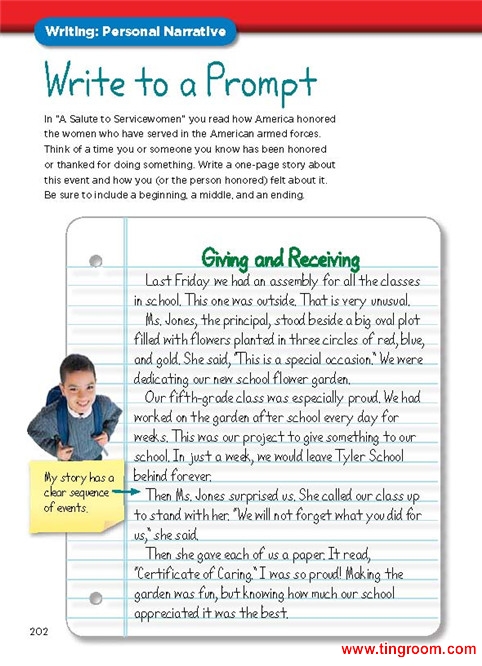 Writing: Personal Narrative
Write to a Prompt
In "A Salute to Servicewomen" you read how America honored
the women who have served in the American armed forces.
Think of a time you or someone you know has been honored
or thanked for doing something. Write a one-page story about
this event and how you (or the person honored) felt about it.
Be sure to include a beginning, a middle, and an ending.
Giving and Receiving
Last Friday we had an assembly for all the classes
in school. This one was outside. That is very unusual.
Ms. Jones, the principal, stood beside a big oval plot
filled with flowers planted in three circles of red, blue,
and gold. She said, "This is a special occasion." We were
dedicating our new school flower garden.
Our fifth-grade class was especially proud. We had
worked on the garden after school every day for
weeks. This was our project to give something to our
school. In just a week, we would leave Tyler School
behind forever.
Then Ms. Jones surprised us. She called our class up
to stand with her. "We will not forget what you did for
us," she said.
Then she gave each of us a paper. It read,
"Certificate of Caring." I was so proud! Making the
garden was fun, but knowing how much our school
appreciated it was the best.
My story has a
clear sequence
of events.
202
www.tingroom.com